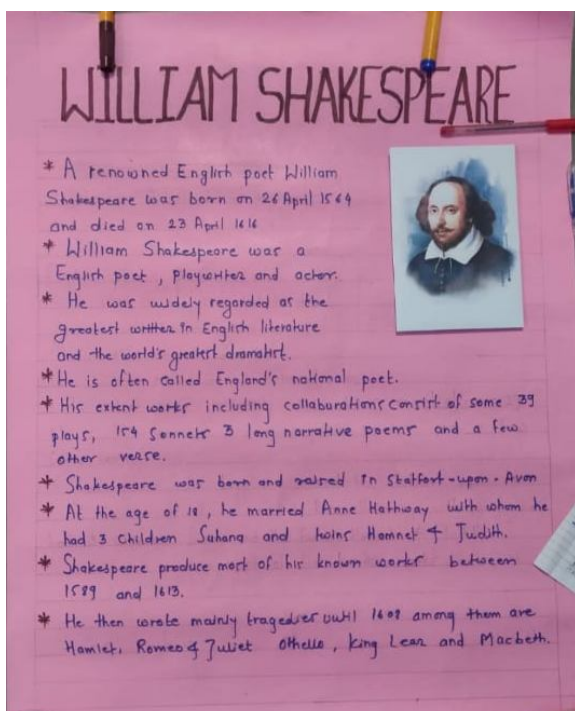 WILLIAM SHAKESPEARE
* A renowned English poet William
Shakespeare was born on 26 April 1564
and died on 23 April 1616
* William Shakespeare was a
English poet, playwriter and actor.
* He was widely regarded as the
greatest writter in English literature
and the world's greatest dramatist.
* He is often called England's national poet.
* His extent works including collaburations consist of some 39
plays, 154 Sonnets 3 long narrative poems and a few
other verse.
* Shakespeare was born and raised in Statfort-upon-Avon
* At the age of 18, he married Anne Hathway with whom he
had 3 children Suhana and twins Hamnet & Judith.
* Shakespeare produce most of his known works between
1589 and 1613.
* He then wrote mainly tragedies until 1608 among them are
Hamlet, Romeo & Juliet Othello, King Lear and Macbeth.